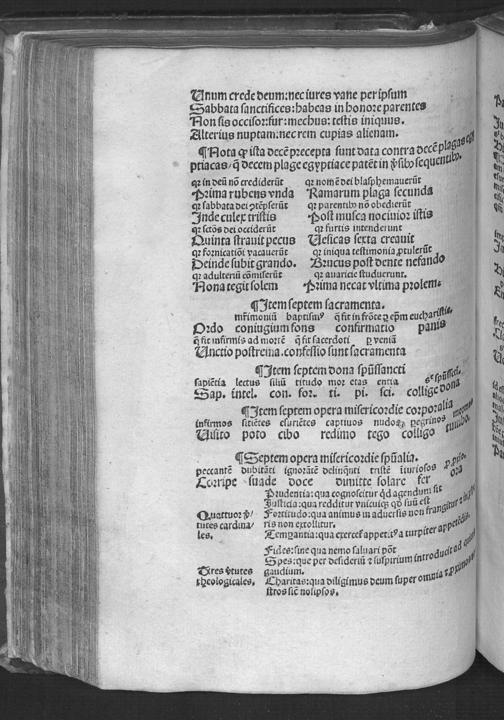 Unum crede deum: nec iures vane per ipsum
Sabbata sanctifices: habeas in honore parentes
Non sis occisor: fur: mechus: testis iniquus.
Alterius nuptam: nec rem cupias alienam.
¶Nota ꝙ ista decē precepta sunt data contra decē plagas egi
ptiacas/ q̄ decem plage egyptiace patēt in v̓sibꝰ sequentibꝰ.
qꝛ in deū nō crediderūt qꝛ nomē dei blasphemauerūt
Prima rubens vnda Ranarum plaga secunda
qꝛ sabbata dei ptēpserūt qꝛ parentibꝰ nō obedierūt
Inde culex tristis Post musca nociuior istis
qꝛ sctōs dei occiderūt qꝛ furtis intenderunt
Quinta strauit pecus Uesicas sexta creauit
qꝛ fornicatiōi vacauerūt qꝛ iniqua testimonia ꝓtulerūt
Deinde subit grando. Brucus post dente nefando
qꝛ adulteriū cōmiserūt qꝛ auaricie studuerunt.
Nona tegit solem Prima necat vltima prolem.
¶Item septem sacramenta.
mr̄imoniū baptismꝰ q̄ fit in frōte ꝑ ep̄m eucharistie.
Ordo coniugium fons confirmatio panis
q̄ fit infirmis ad mortē q̄ fit sacerdoti ꝑ veniā
Unctio postrema. confessio sunt sacramenta
¶Item septem dona spūssancti
sapiētia lectus siliū titudo mor etas entia sc̄ spūssc̄i.
Sap. intel. con. for. ti. pi. sci. collige dona
¶Item septem opera misericordie corporalia
infirmos sitiētes esuriētes captiuos nudos pegrinos mortuos
Uisito poto cibo redimo tego colligo tumulo.
¶Septem opera misericordie spūalia.
peccantē dubitāti ignorātē delinq̄nti tristē iiuriosos
Corripe suade doce dimitte solare fer ora
Prudentia: qua cognoscitur qd agendum sit
Justicia: qua redditur vnicuiqꝫ qd suū est
Quattuor v̓/ Fortitudo: qua animus in aduersis non frangitur
tutes cardina/ ris non extollitur.
les. Temꝑantia: qua exercet͛ appetitꝰ a turpiter appetēdis.
Fides: sine qua nemo saluari pōt
Spes: que per desideriū ⁊ suspirium introducit ad
Tres v̓tutes gaudium.
theologicales. Charitas: qua diligimus deum super omnia ⁊ ꝓximos
stros sic̄ nosipsos.